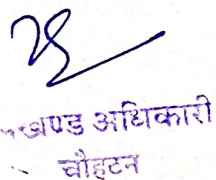 खण्ड अधिकारी
चौहटन